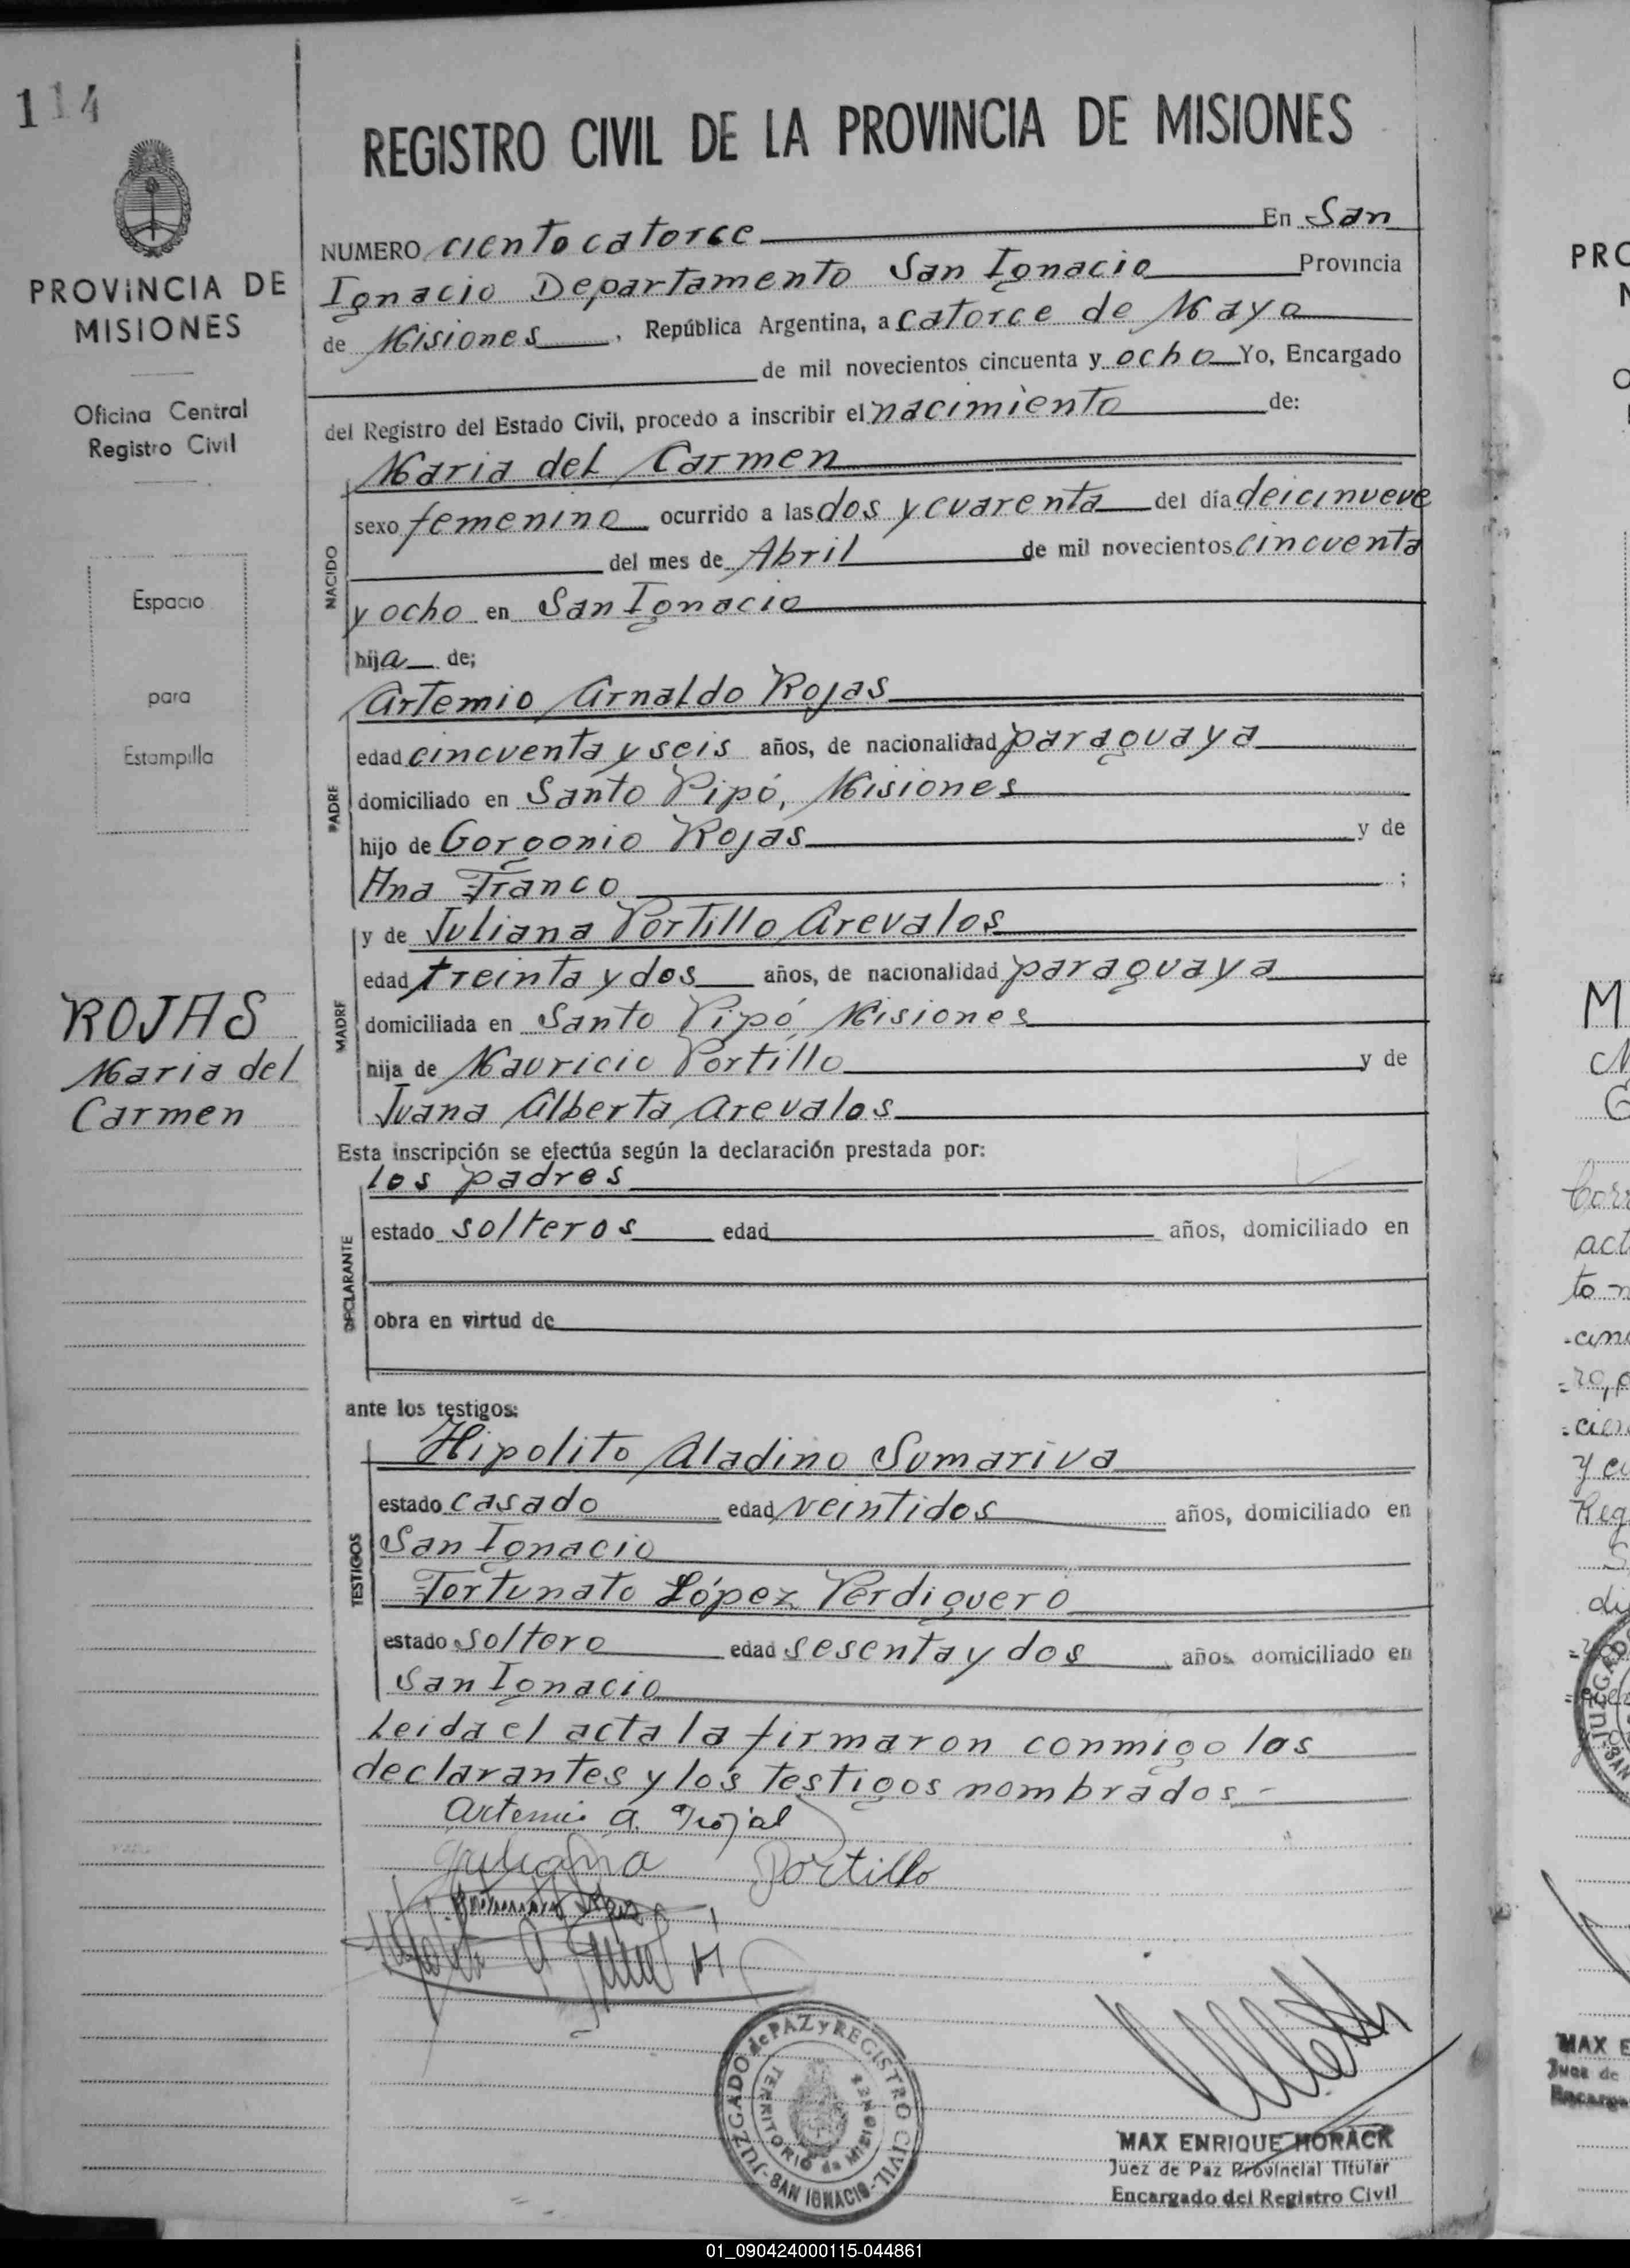 114
PROVINCIA DE
MISIONES
Oficina Central
Registro Civil
Espacio
para
Estampilla
ROJAS
Maria del
Carmen
REGISTRO CIVIL DE LA PROVINCIA DE MISIONES
NUMERO ciento catorce En San
Ignacio Departamento San Ignacio Provincia
de Misiones, República Argentina, a catorce de Mayo
de mil novecientos cincuenta y ocho Yo, Encargado
del Registro del Estado Civil, procedo a inscribir el nacimiento de:
Maria del Carmen
NACIDO
sexo femenino ocurrido a las dos y cuarenta del día deicinueve
del mes de Abril de mil novecientos cincuenta
y ocho en San Ignacio
hija de;
PADRE
Artemio Arnaldo Rojas
edad cincuenta y seis años, de nacionalidad paraguaya
domiciliado en Santo Pipó, Misiones
hijo de Gorgonio Rojas y de
Ana Franco ;
MADRE
y de Juliana Portillo Arevalos
edad treinta y dos años, de nacionalidad paraguaya
domiciliada en Santo Pipó Misiones
hija de Mauricio Portillo y de
Juana Alberta Arevalos
Esta inscripción se efectúa según la declaración prestada por:
DECLARANTE
los padres
estado solteros edad años, domiciliado en
obra en virtud de
ante los testigos:
TESTIGOS
Hipolito Aladino Sumariva
estado casado edad veintidos años, domiciliado en
San Ignacio
Fortunato López Perdiguero
estado soltero edad sesenta y dos años domiciliado en
San Ignacio
Leida el acta la firmaron conmigo los
declarantes y los testigos nombrados -
Artemio A. Rojas
Juliana Portillo
JUZGADO de PAZ y REGISTRO CIVIL - SAN IGNACIO -
TERRITORIO de MISIONES
MAX ENRIQUE HORACK
Juez de Paz Provincial Titular
Encargado del Registro Civil
01_090424000115-044861